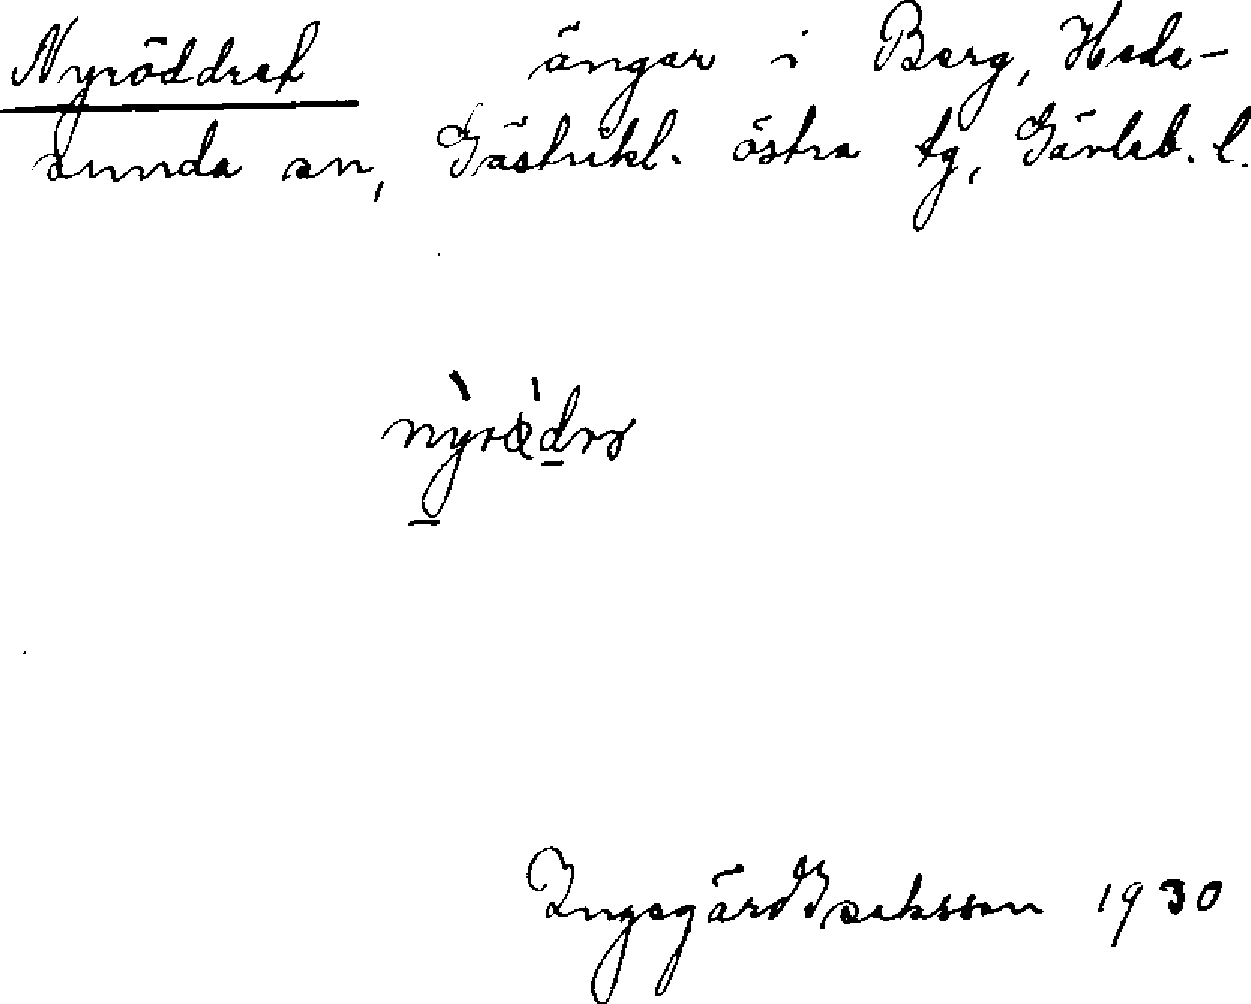 Nyröddret ängar i Berg, Hede-
sunda sn, Gästrikl. östra tg, Gävleb. l.
Ingegärd Isaksson 1930